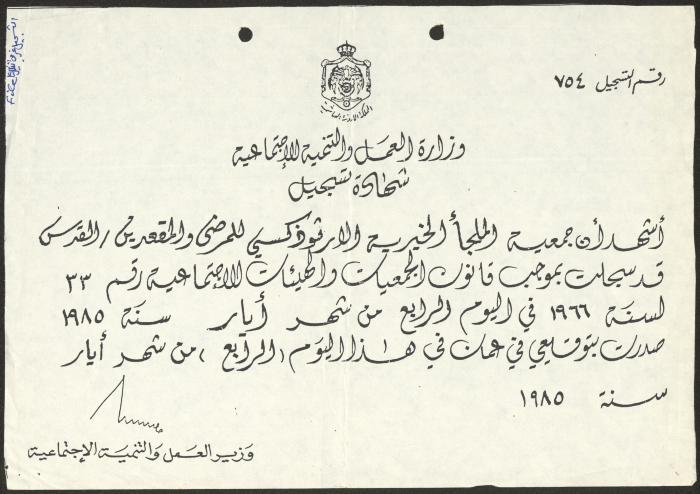 رقم التسجيل ٧٥٤
المملكة الاردنية الهاشمية
وزارة العمل والتنمية الاجتماعية
شهادة تسجيل
أشهد أن جمعية الملجأ الخيرية الارثوذكسي للمرضى والمقعدين / القدس
قد سجلت بموجب قانون الجمعيات والهيئات الاجتماعية رقم ٣٣
لسنة ١٩٦٦ في اليوم الرابع من شهر أيار سنة ١٩٨٥
صدرت بتوقيعي في عمان في هذا اليوم (الرابع) من شهر أيار
سنة ١٩٨٥
وزير العمل والتنمية الإجتماعية